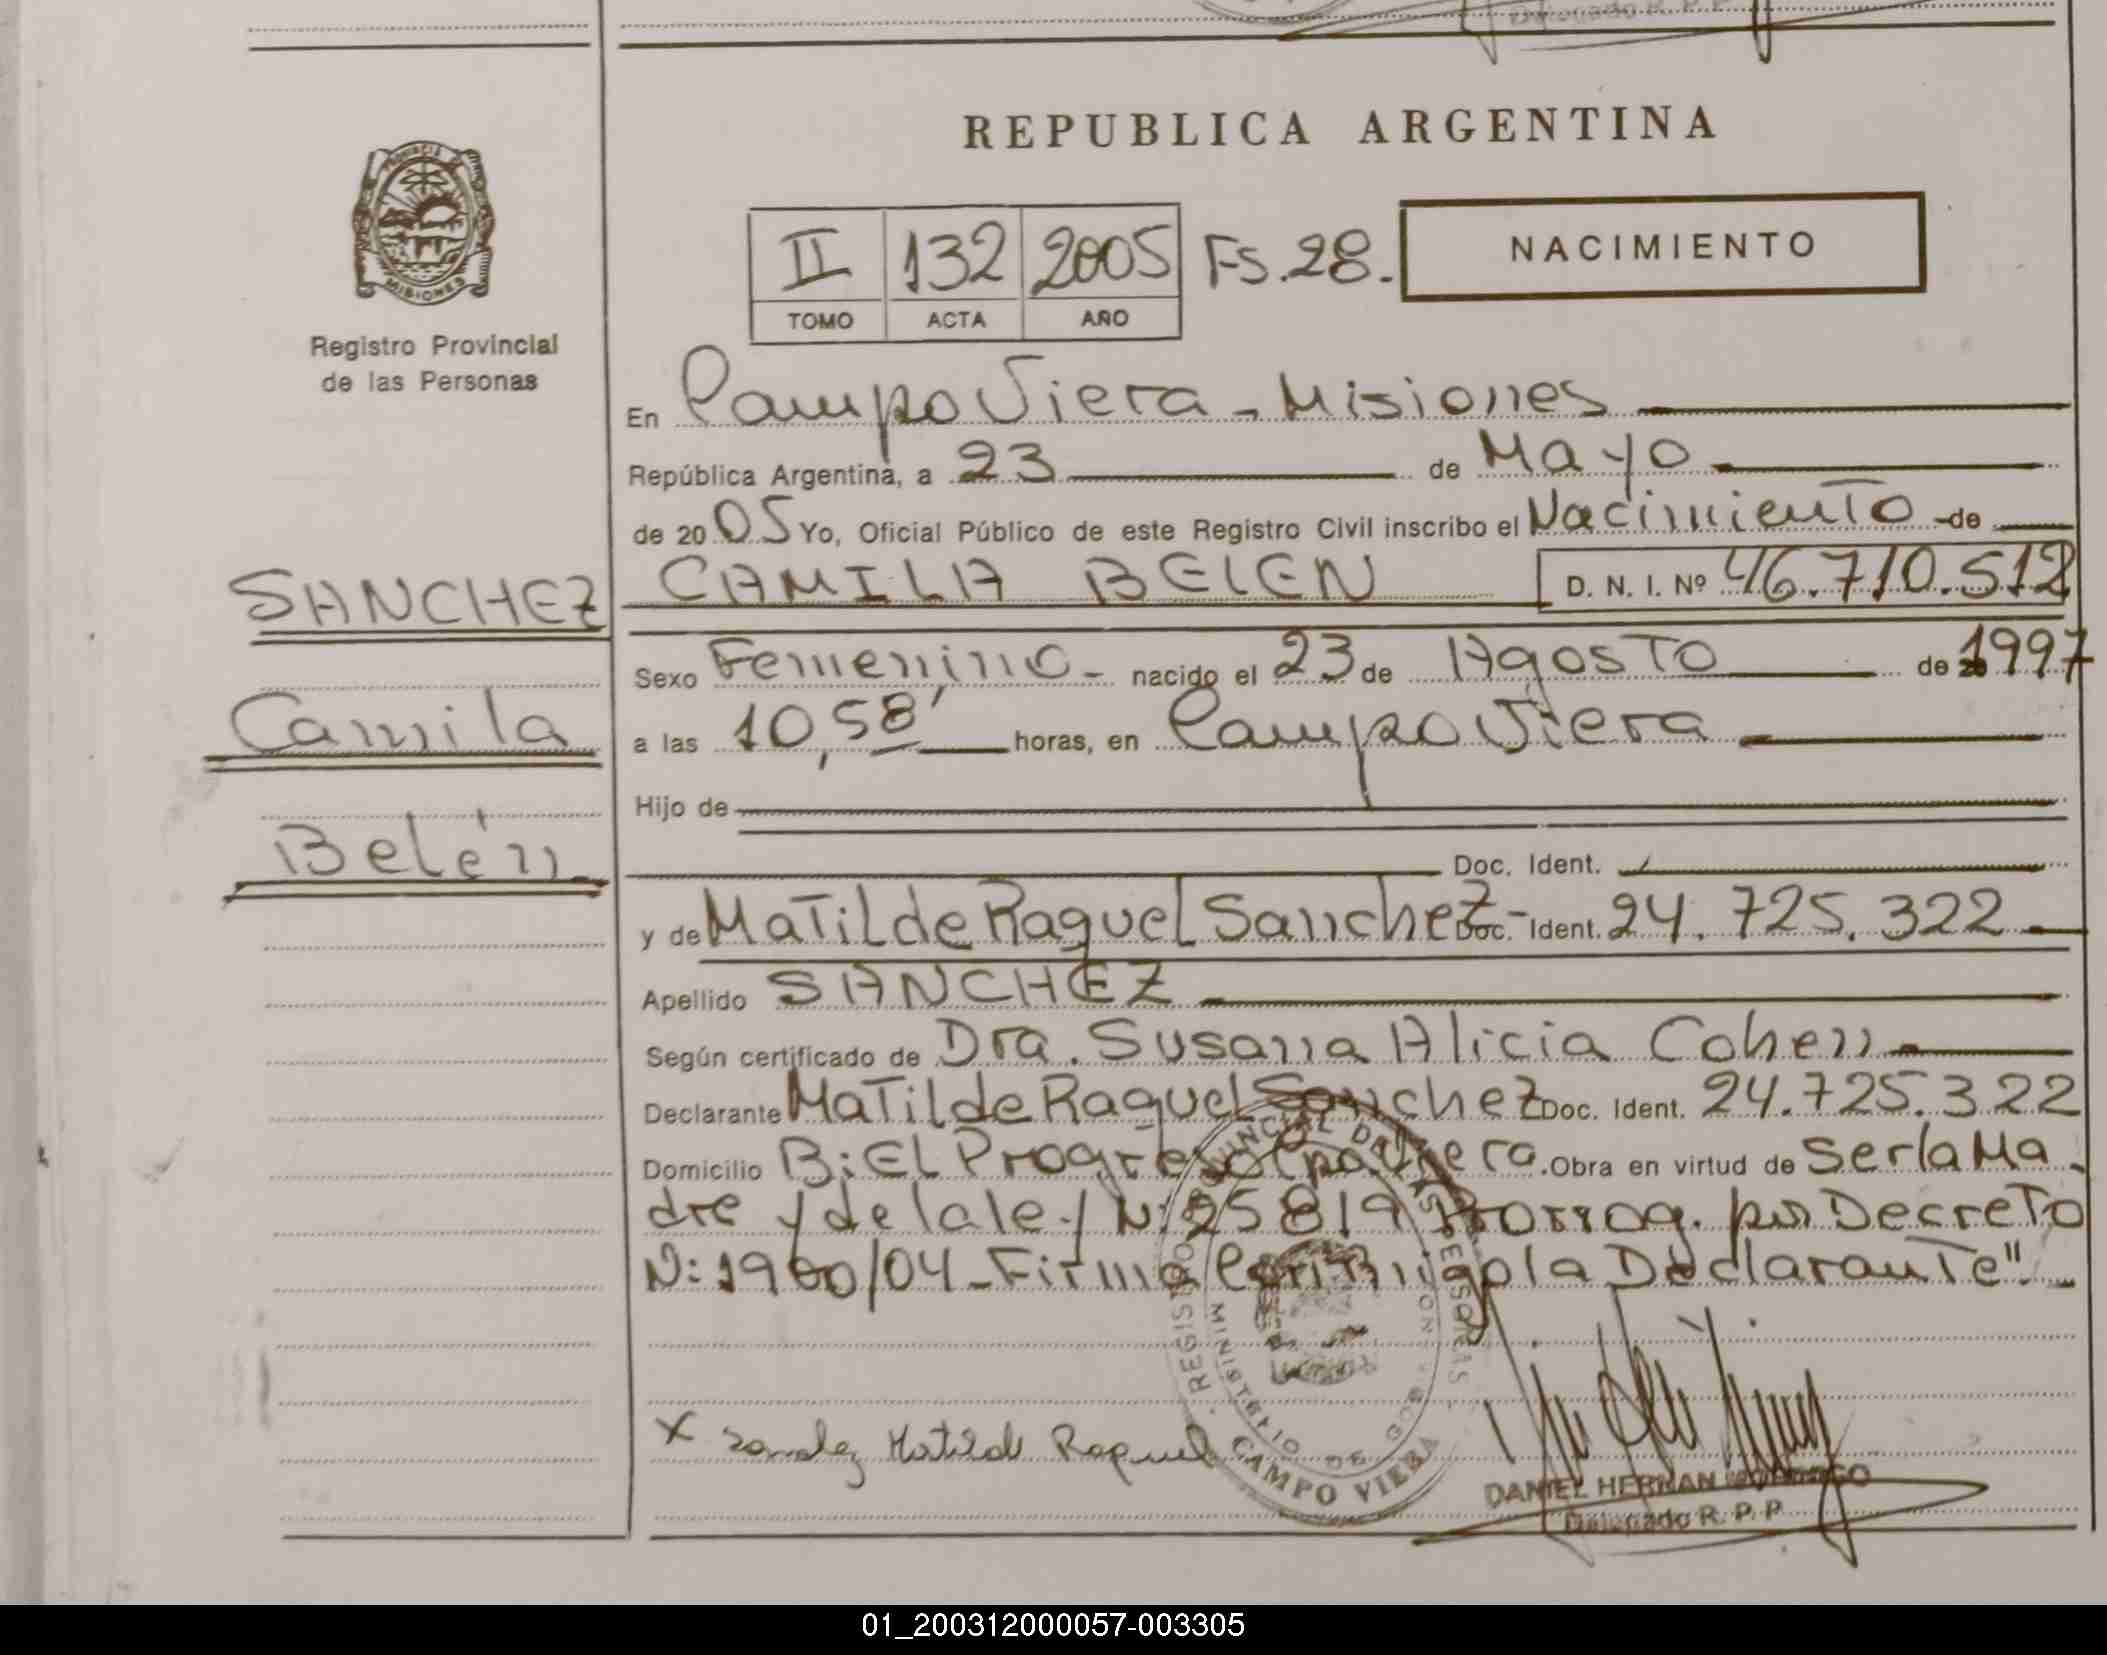 Delegado R. P. P.
REPUBLICA ARGENTINA
PROVINCIA DE MISIONES
II 132 2005 Fs. 28.
TOMO ACTA AÑO
NACIMIENTO
Registro Provincial
de las Personas
En Campo Viera - Misiones
República Argentina, a 23 de Mayo
de 2005 Yo, Oficial Público de este Registro Civil inscribo el Nacimiento de
SANCHEZ
CAMILA BELEN D. N. I. Nº 46.710.512
Sexo Femenino - nacido el 23 de Agosto de 1997
Camila
a las 10,58' horas, en Campo Viera
Hijo de
Belén
Doc. Ident.
y de Matilde Raquel Sanchez - Doc. Ident. 24.725.322
Apellido SANCHEZ
Según certificado de Dra. Susana Alicia Cohen
Declarante Matilde Raquel Sanchez Doc. Ident. 24.725.322
Domicilio B: El Progreso Cpo. Viera. Obra en virtud de Ser la Ma
dre y de la ley N: 25819 Prorrog. por Decreto
N: 1900/04 - Firma Conmigo la Declarante"
REGISTRO PROVINCIAL DE LAS PERSONAS
MINISTERIO DE GOBIERNO
CAMPO VIERA
X Sanchez Matilde Raquel
DANIEL HERNAN
Delegado R. P. P.
01_200312000057-003305